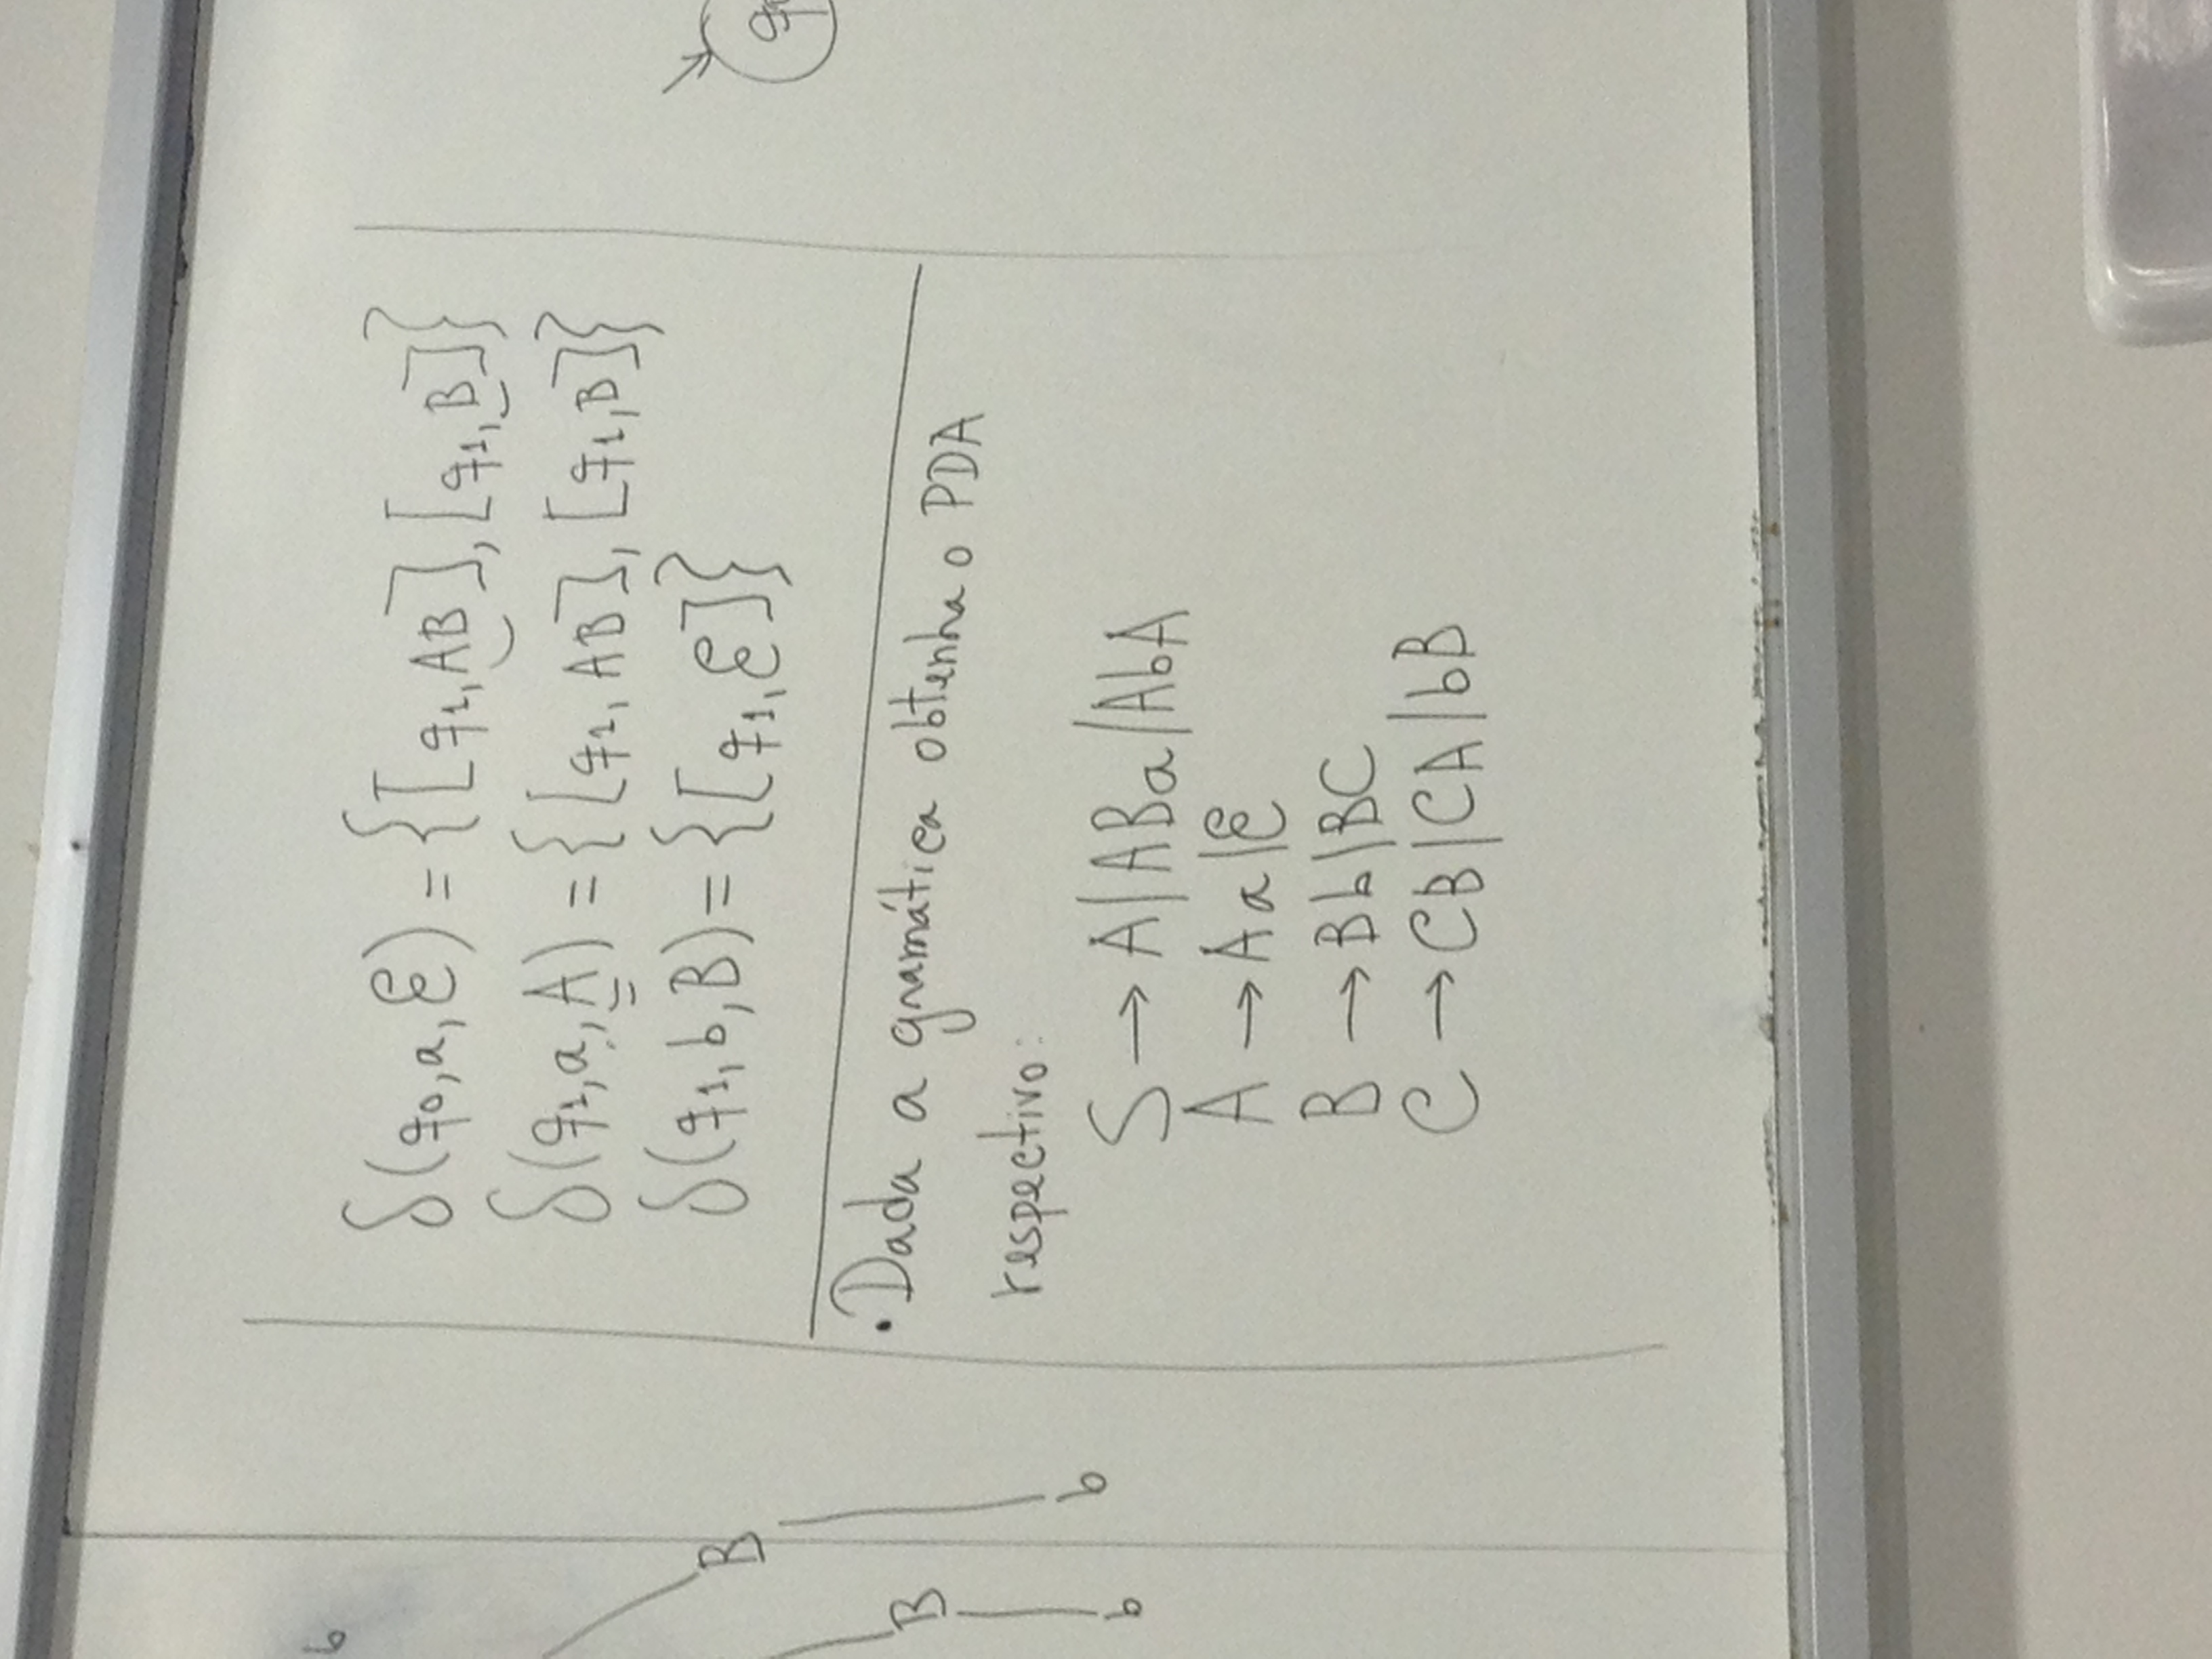 b
B
B
b
b
δ(q₀,a,ℰ) = {[q₁,AB],[q₁,B]}
δ(q₁,a,A) = {[q₁,AB],[q₁,B]}
δ(q₁,b,B) = {[q₁,ℰ]}
• Dada a gramática obtenha o PDA
respectivo:
S → A|ABa|AbA
A → Aa|ℰ
B → Bb|BC
C → CB|CA|bB